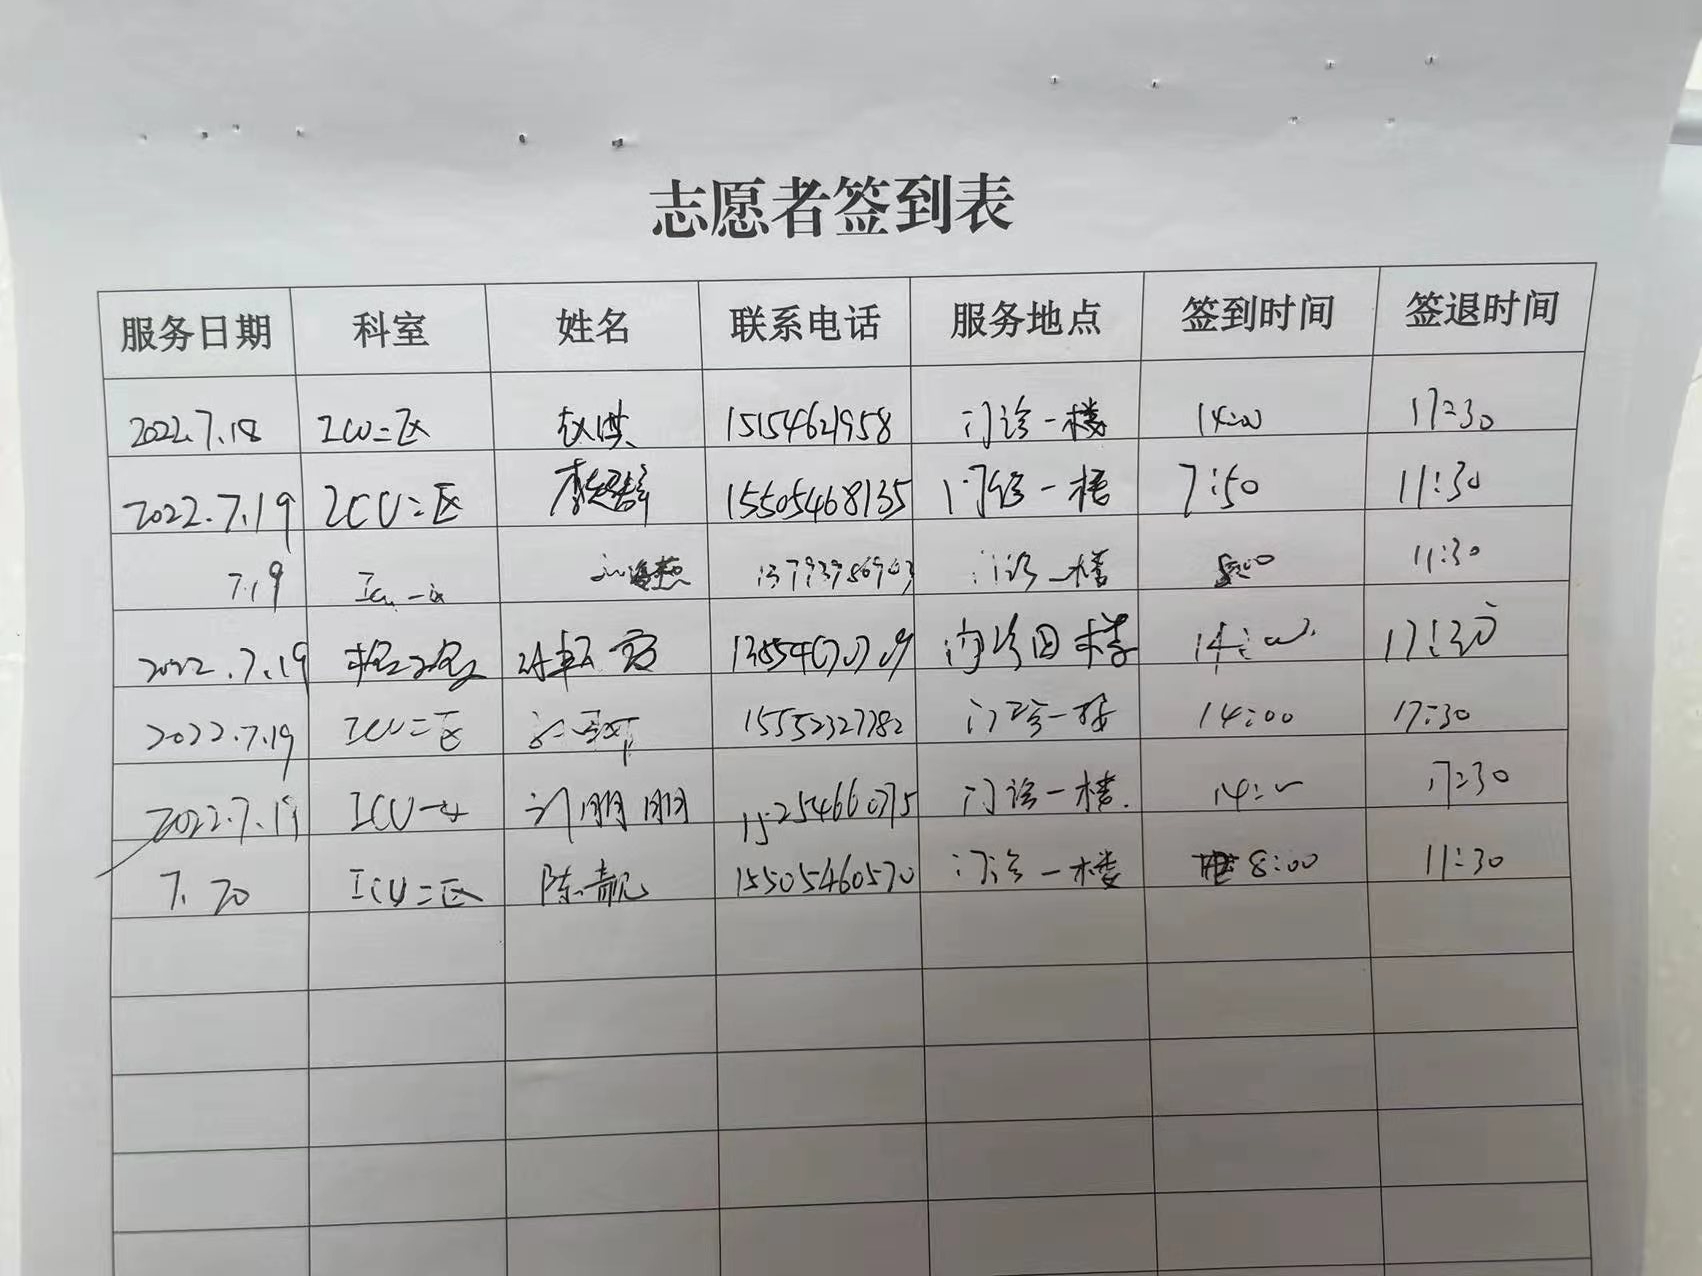 志愿者签到表
服务日期 科室 姓名 联系电话 服务地点 签到时间 签退时间
2022.7.18 ICU二区 赵洪 15154621958 门诊一楼 14:00 17:30
2022.7.19 ICU二区 15505468135 门诊一楼 7:50 11:30
7.19 ICU一区 门诊一楼 8:00 11:30
2022.7.19 门诊四楼 14:00 17:30
2022.7.19 ICU二区 15552327782 门诊一楼 14:00 17:30
2022.7.19 ICU一区 刘朋朋 门诊一楼 14:00 17:30
7.20 ICU二区 陈靓 15505460570 门诊一楼 8:00 11:30